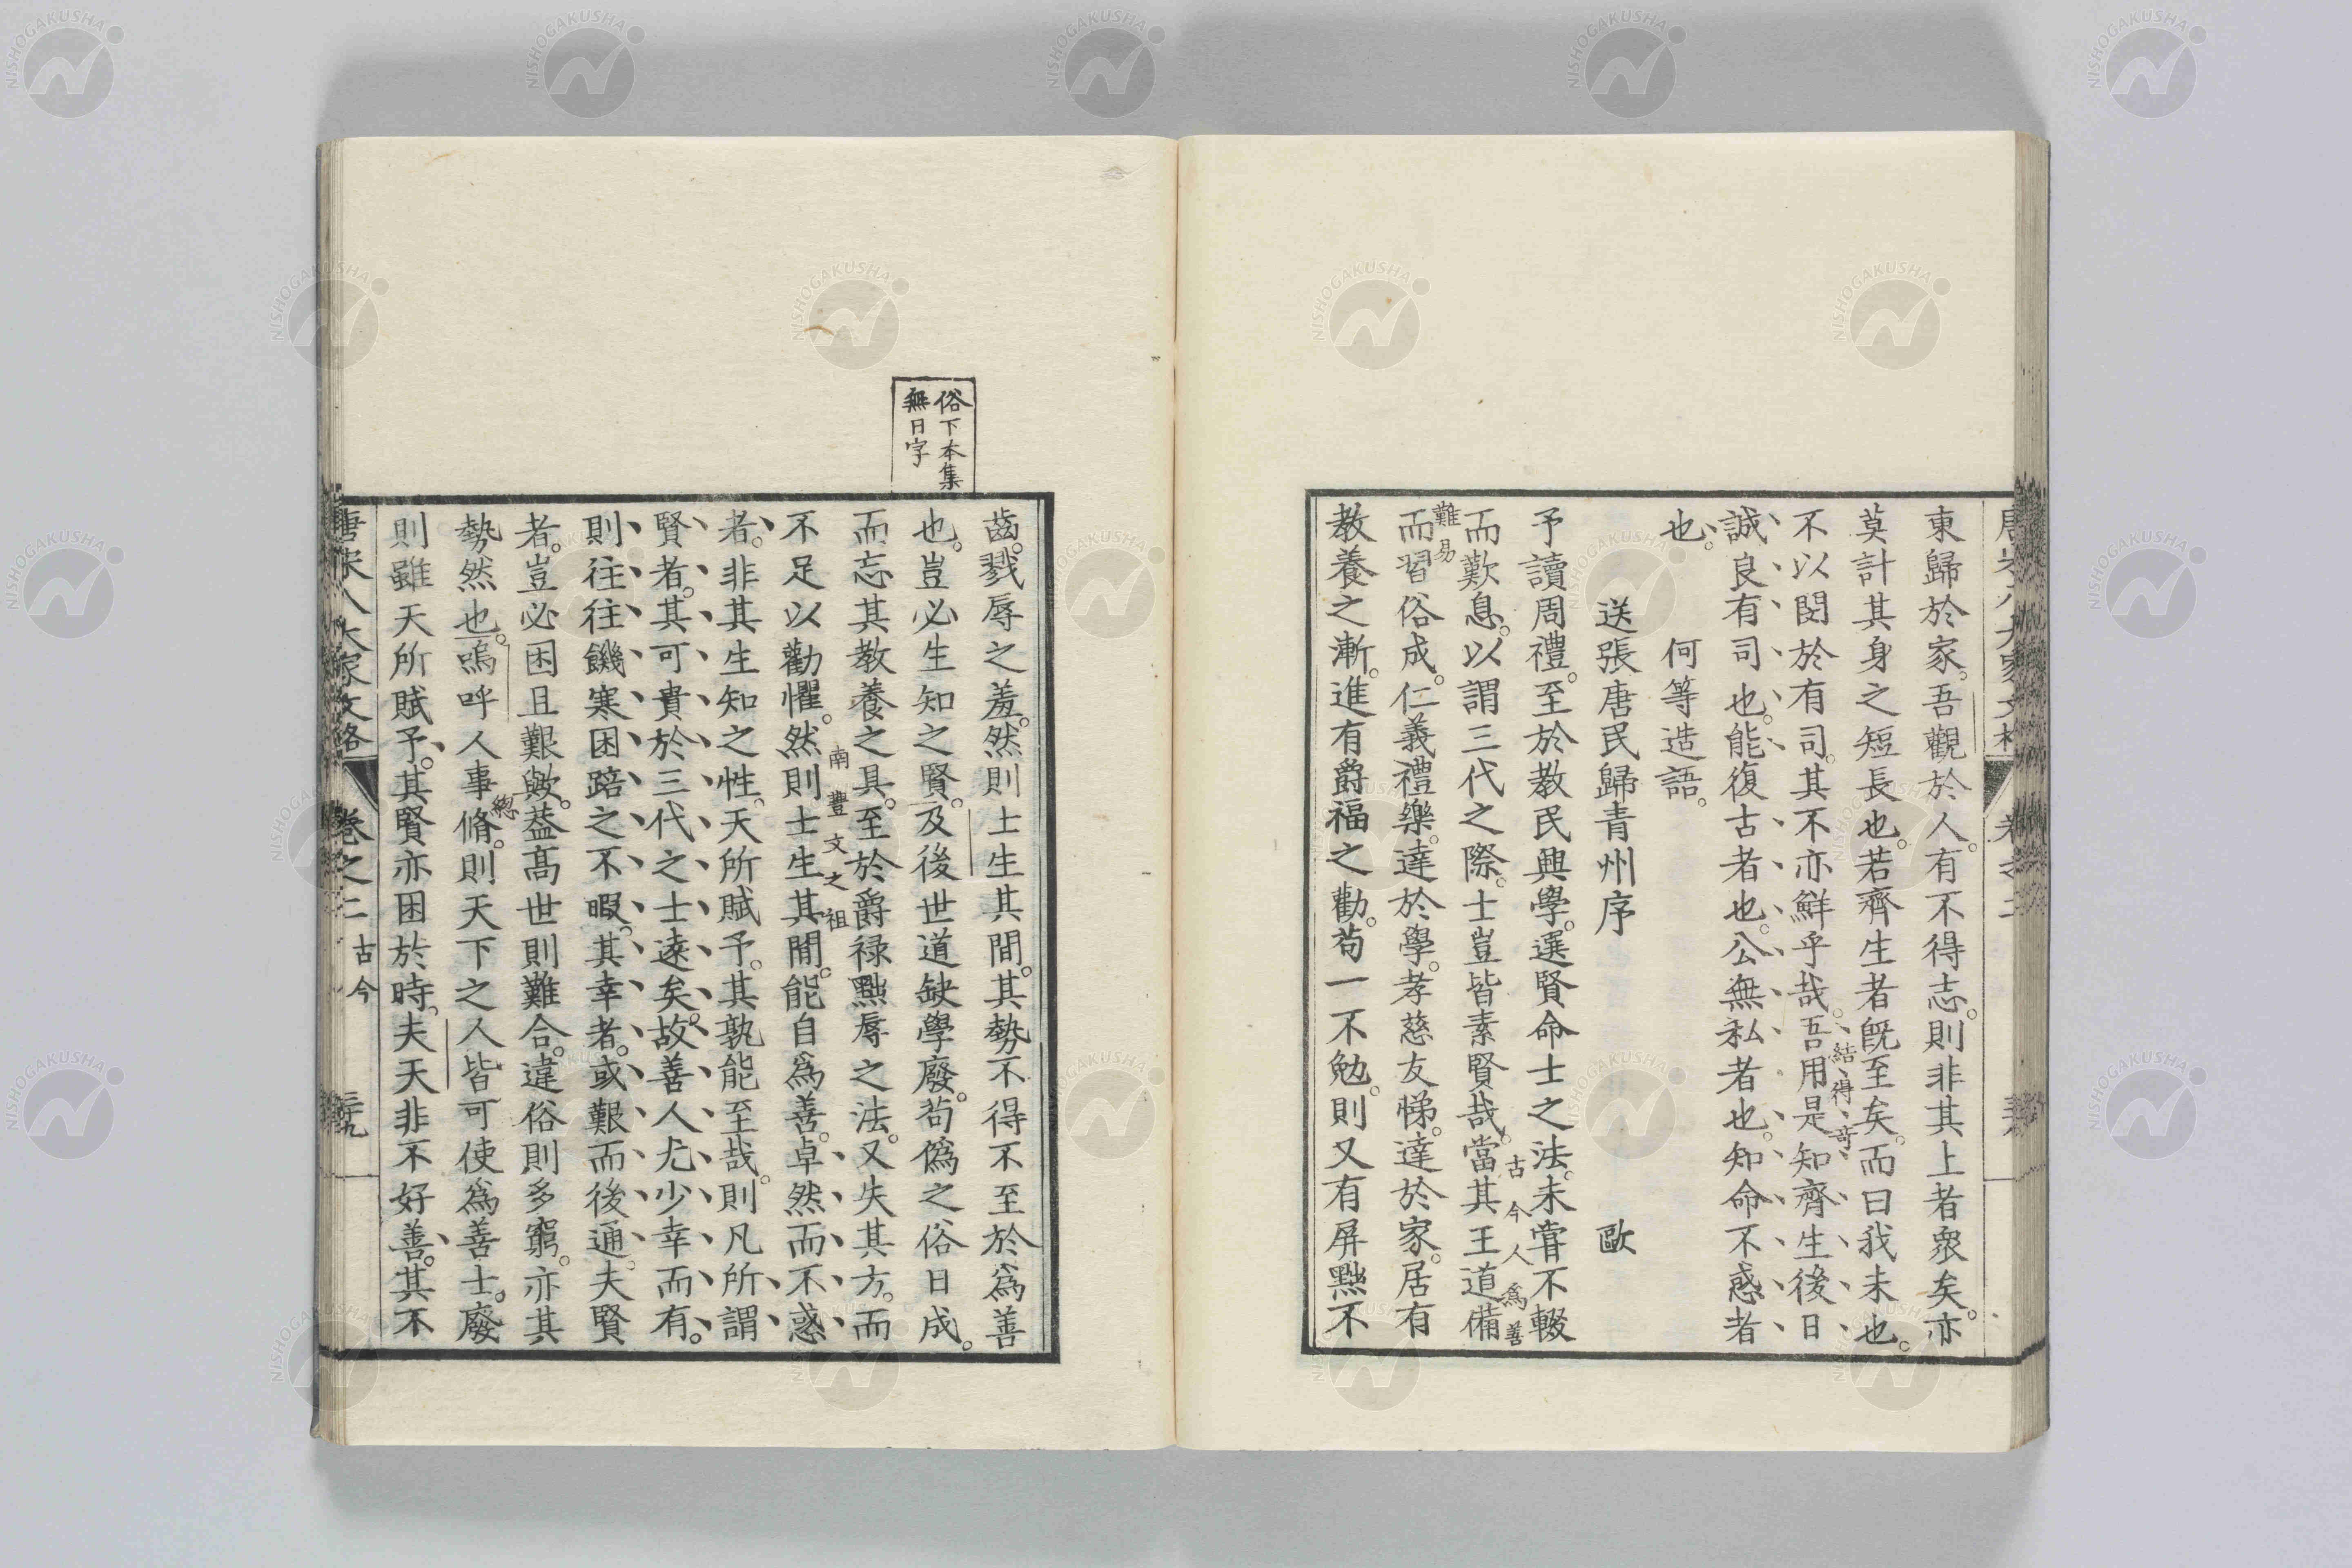 東歸於家。吾觀於人。有不得志。則非其上者衆矣。亦
莫計其身之短長也。若齊生者旣至矣。而曰我未也。
不以閔於有司。其不亦鮮乎哉。吾用是知齊生後日
結得奇
誠良有司也。能復古者也。公無私者也。知命不惑者
也。
何等造語。
送張唐民歸青州序 歐
予讀周禮。至於教民興學。選賢命士之法。未嘗不輟
古今人爲善
而歎息。以謂三代之際。士豈皆素賢哉。當其王道備
難易
而習俗成。仁義禮樂。達於學。孝慈友悌。達於家。居有
教養之漸。進有爵福之勸。苟一不勉。則又有屏黜不
俗下本集
無日字
齒。戮辱之羞。然則士生其間。其勢不得不至於爲善
也。豈必生知之賢。及後世道缺學廢。苟僞之俗日成。
而忘其教養之具。至於爵祿黜辱之法。又失其方。而
南豐文之祖
不足以勸懼。然則士生其間。能自爲善。卓然而不惑
者。非其生知之性。天所賦予。其孰能至哉。則凡所謂
賢者。其可貴於三代之士遠矣。故善人尤少幸而有。
則往往饑寒困踣之不暇。其幸者。或艱而後通。夫賢
者。豈必困且艱歟。葢高世則難合。違俗則多窮。亦其
總
勢然也。嗚呼人事脩。則天下之人皆可使爲善士。廢
則雖天所賦予。其賢亦困於時。夫天非不好善。其不
唐宋八大家文格 卷之二 古今